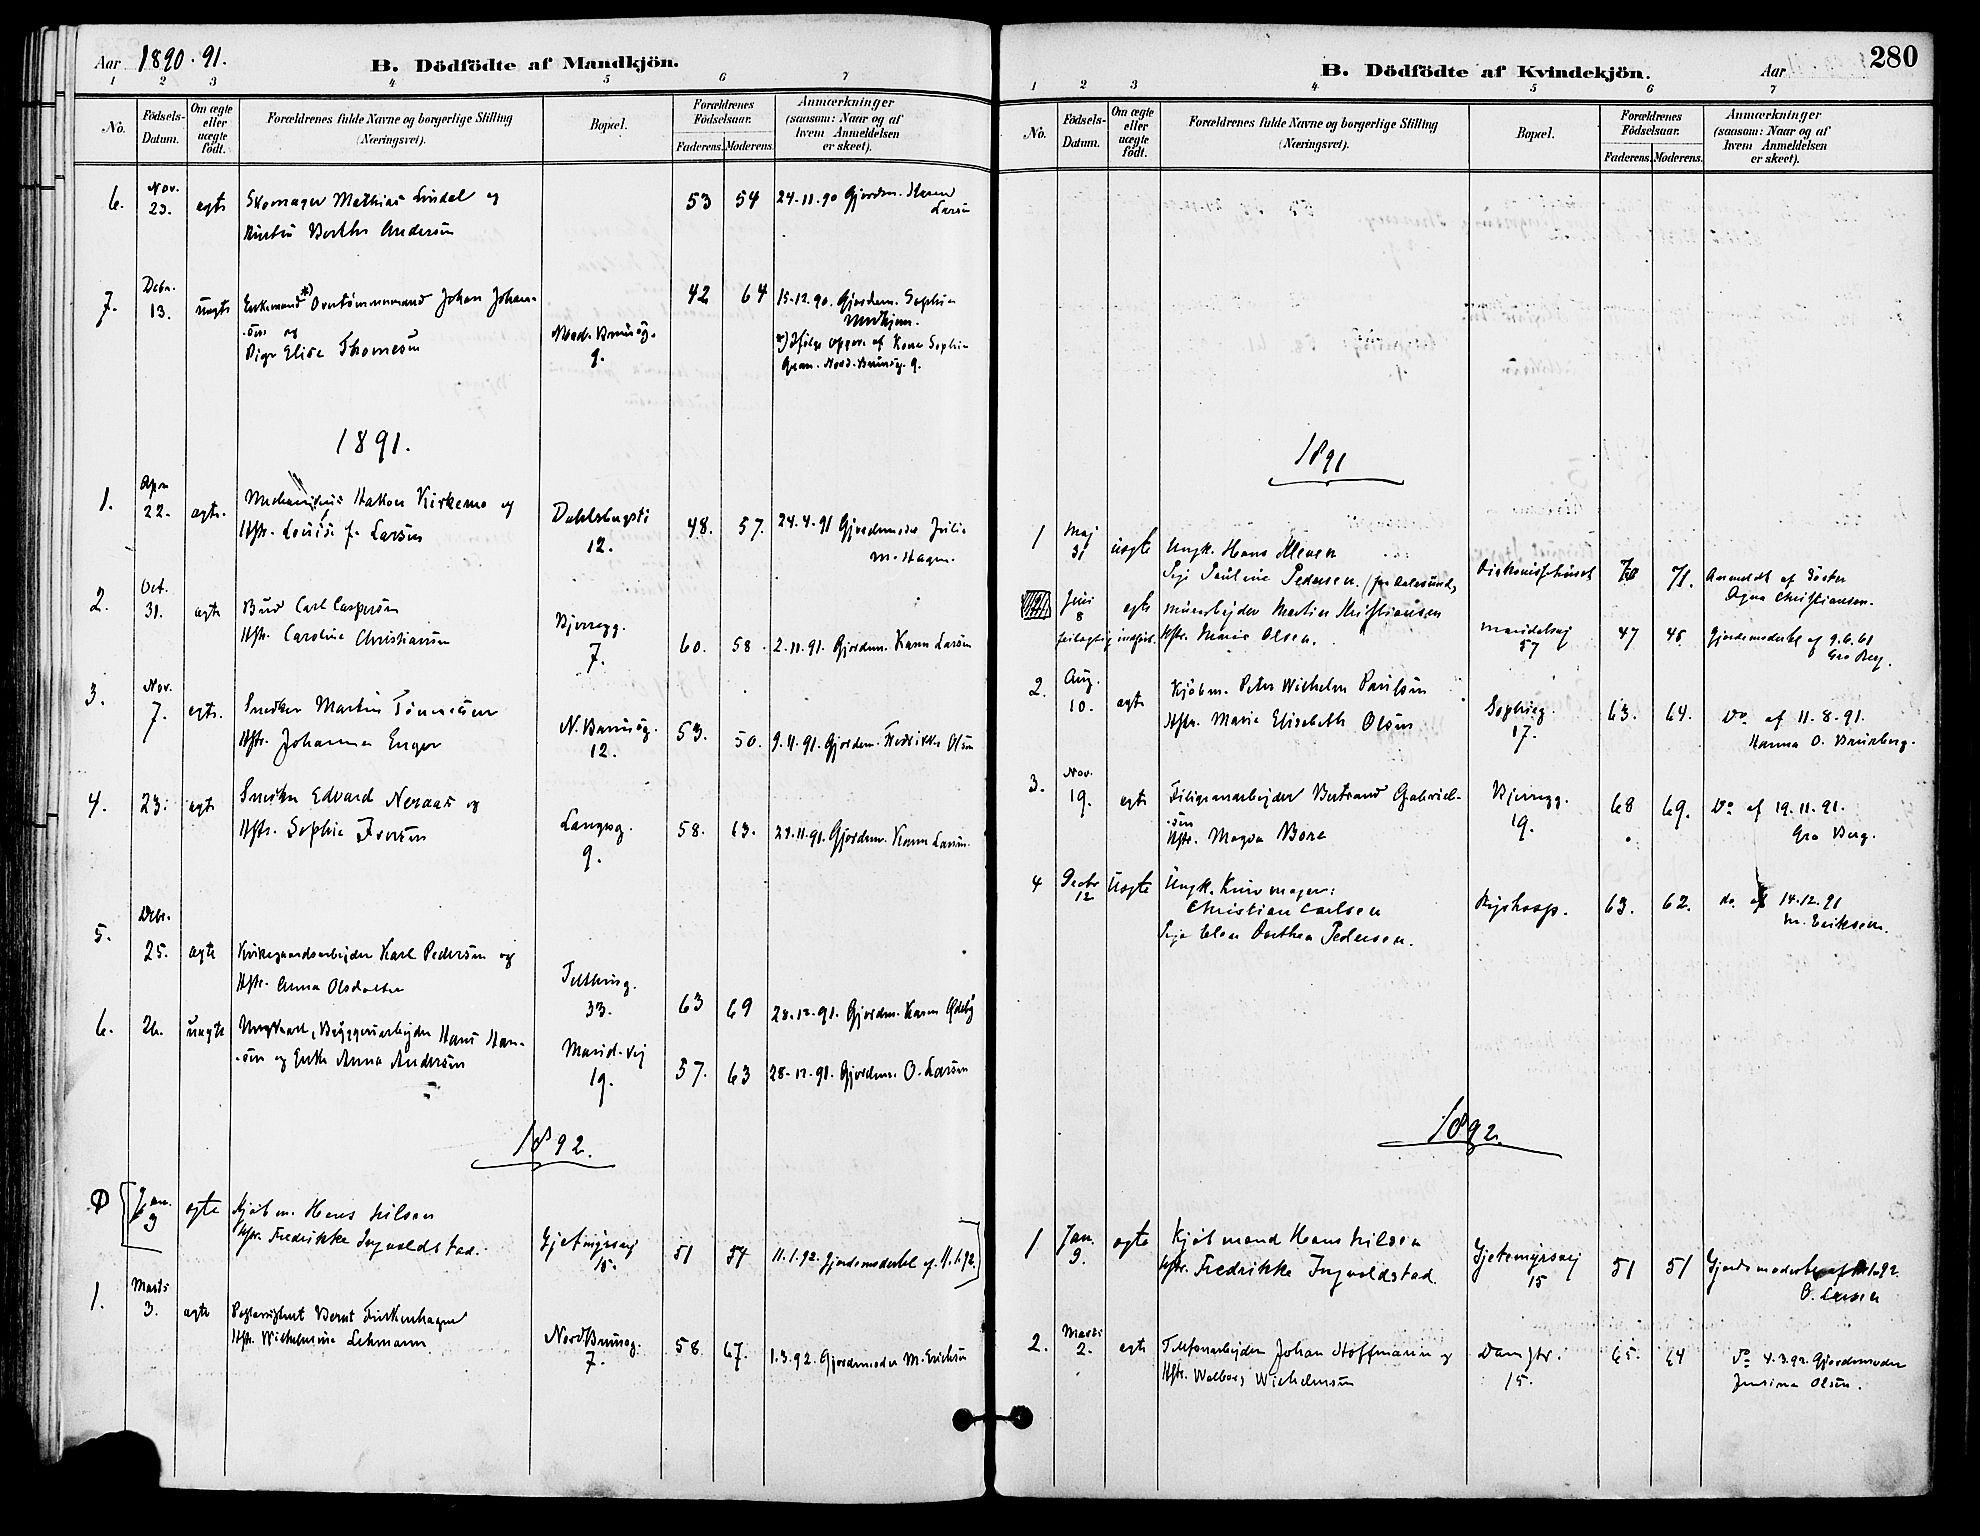 Aar 1890-91.
B. Dödfödte af Mandkjön.
1 2 3 4 5 6 7
No.
Födsels-Datum.
Om ægte eller uægte födt.
Forældrenes fulde Navne og borgerlige Stilling (Næringsvei).
Bopæl.
Forældrenes Födselsaar.
Faderens. Moderens.
Anmærkninger (saasom: Naar og af hvem Anmeldelsen er skeet).
6. Nov. 23. ægte Skomager Mathias Lindal og 53 54 24-11-90 Gjordm. Karen Larsen
Berthe Andersen
7. Debr. 13. uægte Enkemand *) Johan Johan-
-sen og
Pige Elise Thomesen
9.
42 64 15-12.90. Gjordem. Sophie
*) Ifølge Opgave af Sophie
9.
1891.
1. Apr. 22. ægte. Hakon Kirkemo og
Hstr. Louise f. Larsen
Dahlsbergsti 12.
48. 57. 24-4-91 Gjordemoder Julie
M. Hagen.
2. Oct. 31. ægte Bud Carl Caspersen
Hstr. Caroline Christiansen
Bjerregg. 7.
60. 58. 2-11-91. Gjordem. Karen Larsen
3. Nov. 7. ægte. Snedker Martin Tønnesen
Hstr. Johanna Enger
12.
53. 50. 9-11-91. Gjordem. Fredrikke Olsen
4. 23. ægte Snedker Edvard Neraas og
Hstr. Sophie Iversen
Langesg. 9.
58. 63. Gjordem. Karen Larsen
5. Debr. 25. ægte Kirkegaardsarbejder Karl Pedersen og
Hstr. Anna Olsdatter
33.
63 69 28-12-91. Gjordem. Karen Ødeby
6. 26. uægte Ungkarl, Bryggeriarbejder Hans Han-
-sen og Enke Anna Andersen
Marid.vej 19.
57. 63 28-12-91. Gjordem. O. Larsen
1892.
Jan. 9 ægte Kjøbm. Hans Nilsen
Hstr. Fredrikke Ingvoldstad.
Gjetmyrsvej 15.
51 51 11.1.92. Gjordemoderbel af 11.1.92.
1. Marts 3. ægte Bernt Finkenhagen
Hstr. Wilhelmine Lehmann.
7.
58. 67. 1.3.92. Gjordemoder M. Erichsen
280
B. Dödfödte af Kvindekjön.
Aar
1 2 3 4 5 6 7
No.
Födsels-Datum.
Om ægte eller uægte födt.
Forældrenes fulde Navne og borgerlige Stilling (Næringsvei).
Bopæl.
Forældrenes Födselsaar.
Faderens. Moderens.
Anmærkninger (saasom: Naar og af hvem Anmeldelsen er skeet).
1891
1 Maj 31 uægte Ungk. Hans Kleven
Pige Pauline Pedersen. (fra Aalesund)
Diakonissehuset
71. Anmeldt af Søster
Christiansen.
Juni 8 ægte Murarbejder Martin Kristiansen
feilagtig indført. Hstr. Marie Olsen.
Maridalsvej 57
47 45 Gjordemoderbl af
Gro Berg.
2. Aug. 10. ægte Kjøbm. Peter Wilhelm Paulsen
Hstr. Marie Elisabeth Olsen
Sophieg. 17.
63. 64. Do af 11-8-91.
Hanna O. Brunberg.
3. Nov. 19. ægte Filigransarbejder Bertrand Gabriel-
-sen
Hstr. Magda Bore
Bjerregg. 19.
68 69. Do af 19.11-91.
Gro Berg.
4 Decbr 12 Uægte Ungk. Kurvmager:
Christian Carlsen
Pige Elen Dorthea Pedersen.
Rigshosp.
63. 62. do. af 14-12.91
M. Eriksen.
1892.
1 Jan. 9. ægte Kjøbmand Hans Nilsen
Hstr. Fredrikke Ingvoldstad.
Gjetemyrsvej 15
51 51 Gjordemoderbl af
O. Larsen
2. Marts 2. ægte Telefonarbejder Johan Hoffmann og
Hstr. Walborg Wilhelmsen
Damstr. 15.
65. 64 Do 4.3.92. Gjordemoder
Jensine Olsen.